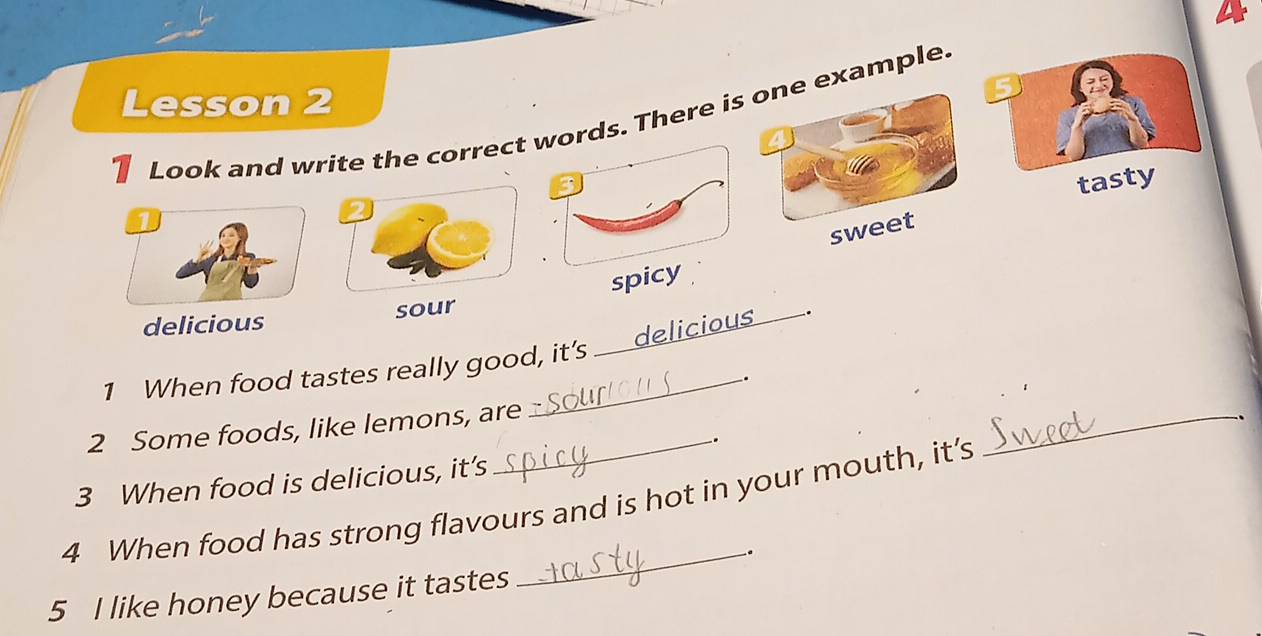 4
Lesson 2
1 Look and write the correct words. There is one example.
1 2 3 4 5
delicious sour spicy sweet tasty
1 When food tastes really good, it's delicious.
2 Some foods, like lemons, are sour.
3 When food is delicious, it's spicy.
4 When food has strong flavours and is hot in your mouth, it's Sweet.
5 I like honey because it tastes tasty.